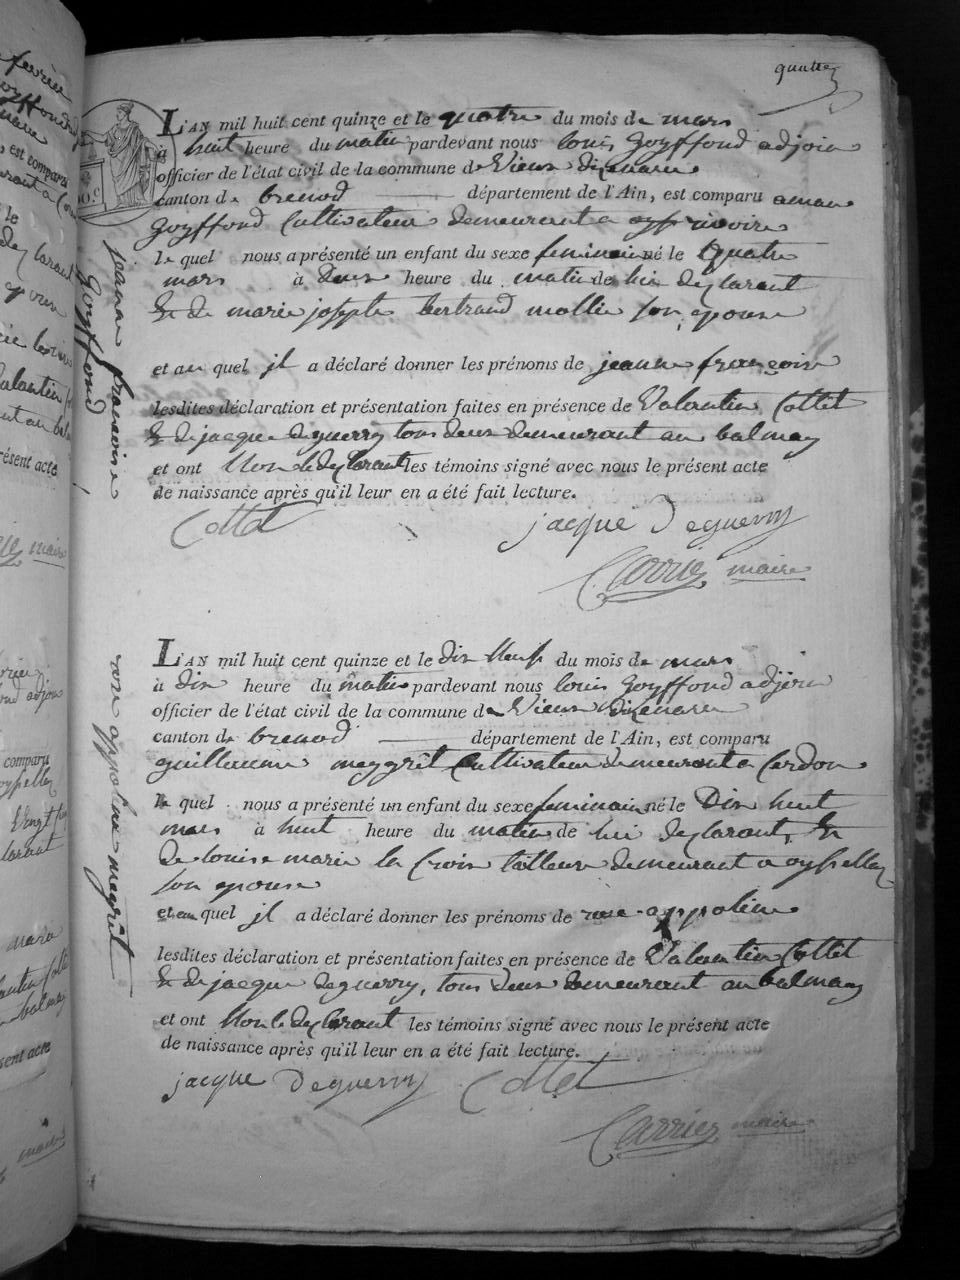 quatre
L'AN mil huit cent quinze et le quatre du mois de mars
à huit heure du matin pardevant nous louis goyffond adjoin
officier de l'état civil de la commune de Vieux dizenave
canton de brenod département de l'Ain, est comparu aman
goyffond Cultivateur demeurent a
le quel nous a présenté un enfant du sexe feminain né le quatre
mars à deux heure du matin de lui declarant
Et de marie josephte bertrand mollie son epouse
et au quel il a déclaré donner les prénoms de jeanne françoise
lesdites déclaration et présentation faites en présence de Valantin Collet
Et de jacque deguerry tous deux demeurant au balmay
et ont Non le declarant les témoins signé avec nous le présent acte
de naissance après qu'il leur en a été fait lecture.
Collet jacque Deguerry
Carrier maire
jeanne francoise
goyffond
L'AN mil huit cent quinze et le dix Neuf du mois de mars
à dix heure du matin pardevant nous louis goyffond adjoin
officier de l'état civil de la commune de Vieux dizenave
canton de brenod département de l'Ain, est comparu
guillaume meygret Cultivateur demeurant a Cerdon
le quel nous a présenté un enfant du sexe feminain né le Dix huit
mars à huit heure du matin de lui declarant, Et
de louise marie la Croix tailleuse demeurant a oysellaz
son epouse
et au quel il a déclaré donner les prénoms de rose appoline
lesdites déclaration et présentation faites en présence de Valantin Collet
Et de jacque deguerry, tous deux demeurant au balmay
et ont Non le declarant les témoins signé avec nous le présent acte
de naissance après qu'il leur en a été fait lecture.
jacque Deguerry Collet
Carrier maire
rose appoline megrèt